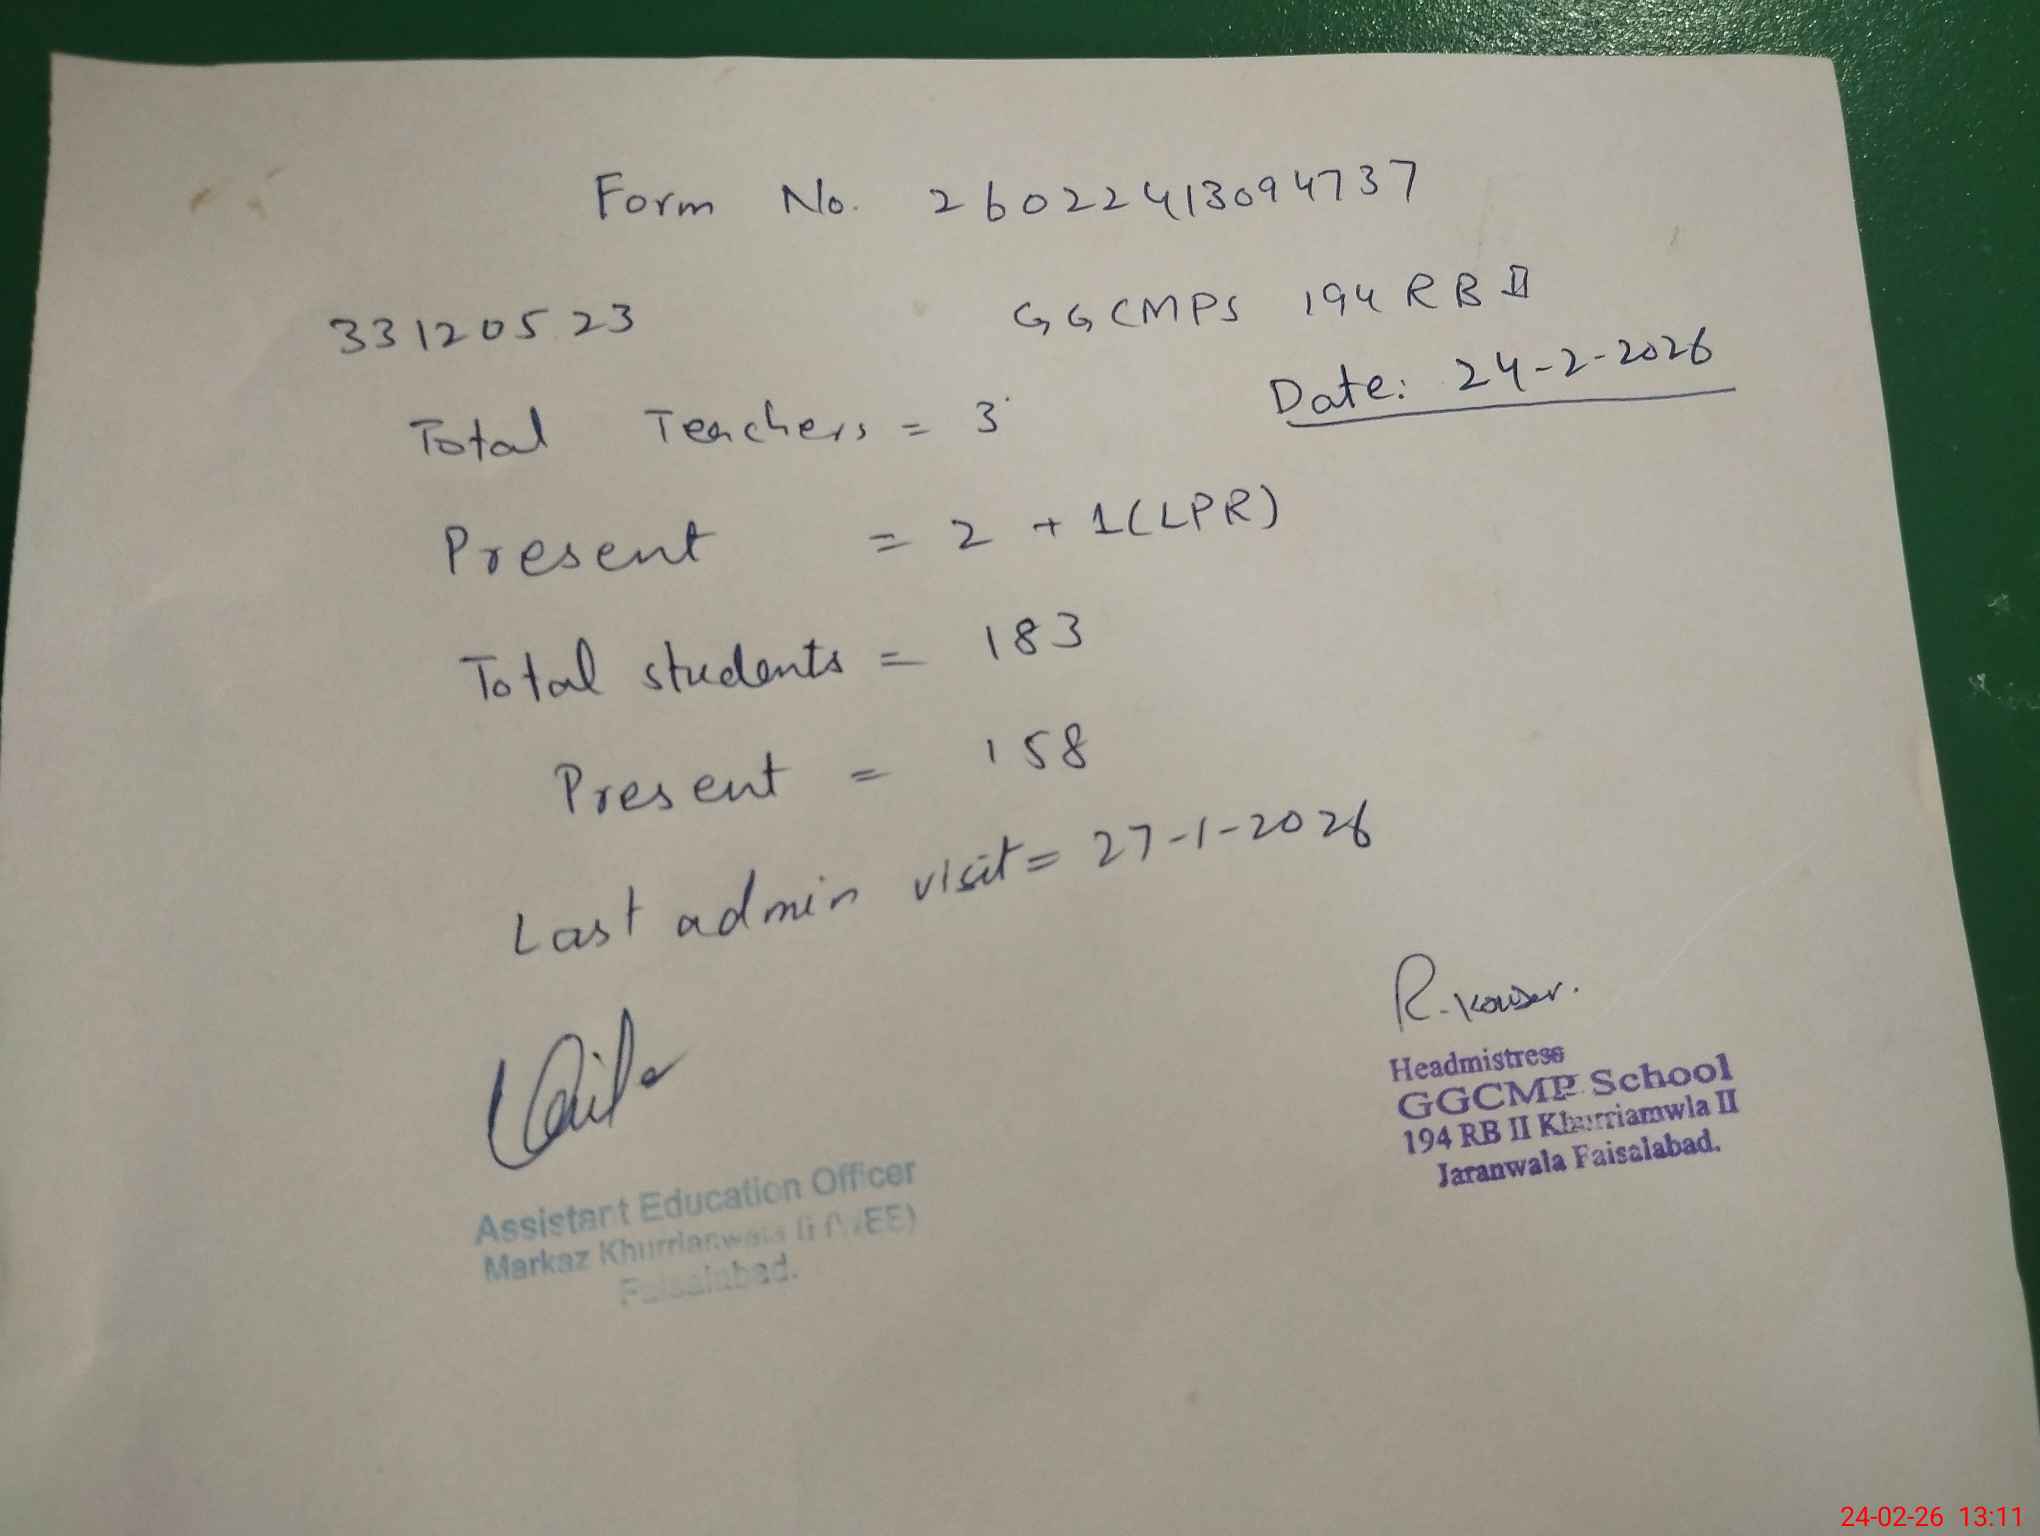 Form No. 26022413094737
33120523 GGCMPS 194 RB II
Date: 24-2-2026
Total Teachers = 3
Present = 2 + 1(LPR)
Total students = 183
Present = 158
Last admin visit = 27-1-2026
R. Kouser.
Headmistress
GGCMP School
194 RB II Khurriamwla II
Jaranwala Faisalabad.
Assistant Education Officer
Markaz Khurrianwala
Faisalabad.
24-02-26 13:11